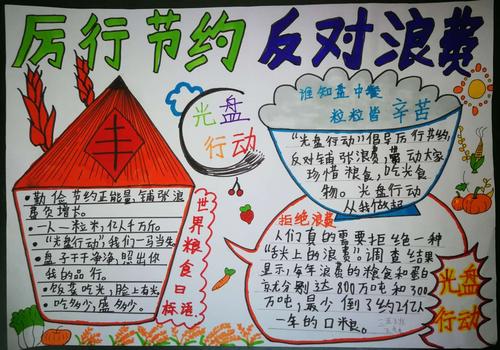 厉行节约 反对浪费
光盘
行动
丰
勤俭节约正能量,铺张浪
费负增长。
一人一粒米,亿人千万斤。
“光盘行动”我们一马当先。
盘子干干净净,照出你
我的品行。
饭菜吃光,脸上有光
吃多少,盛多少。
世界粮食日
标语
谁知盘中餐
粒粒皆辛苦
“光盘行动”倡导厉行节约,
反对铺张浪费,带动大家
珍惜粮食,吃光食
物。光盘行动
从我做起
拒绝浪费
人们真的需要拒绝一种
“舌尖上的浪费”。调查结果
显示,每年浪费的粮食和蛋白
质充分别达800万吨和300
万吨,最少倒了约2亿人
一年的口粮。
光盘
行动